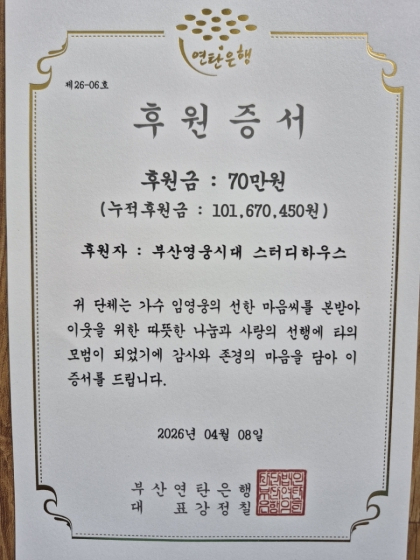 연탄은행
제26-06호
후원증서
후원금 : 70만원
(누적후원금 : 101,670,450원)
후원자 : 부산영웅시대 스터디하우스
귀 단체는 가수 임영웅의 선한 마음씨를 본받아
이웃을 위한 따뜻한 나눔과 사랑의 선행에 타의
모범이 되었기에 감사와 존경의 마음을 담아 이
증서를 드립니다.
2026년 04월 08일
부산연탄은행
대 표강정칠